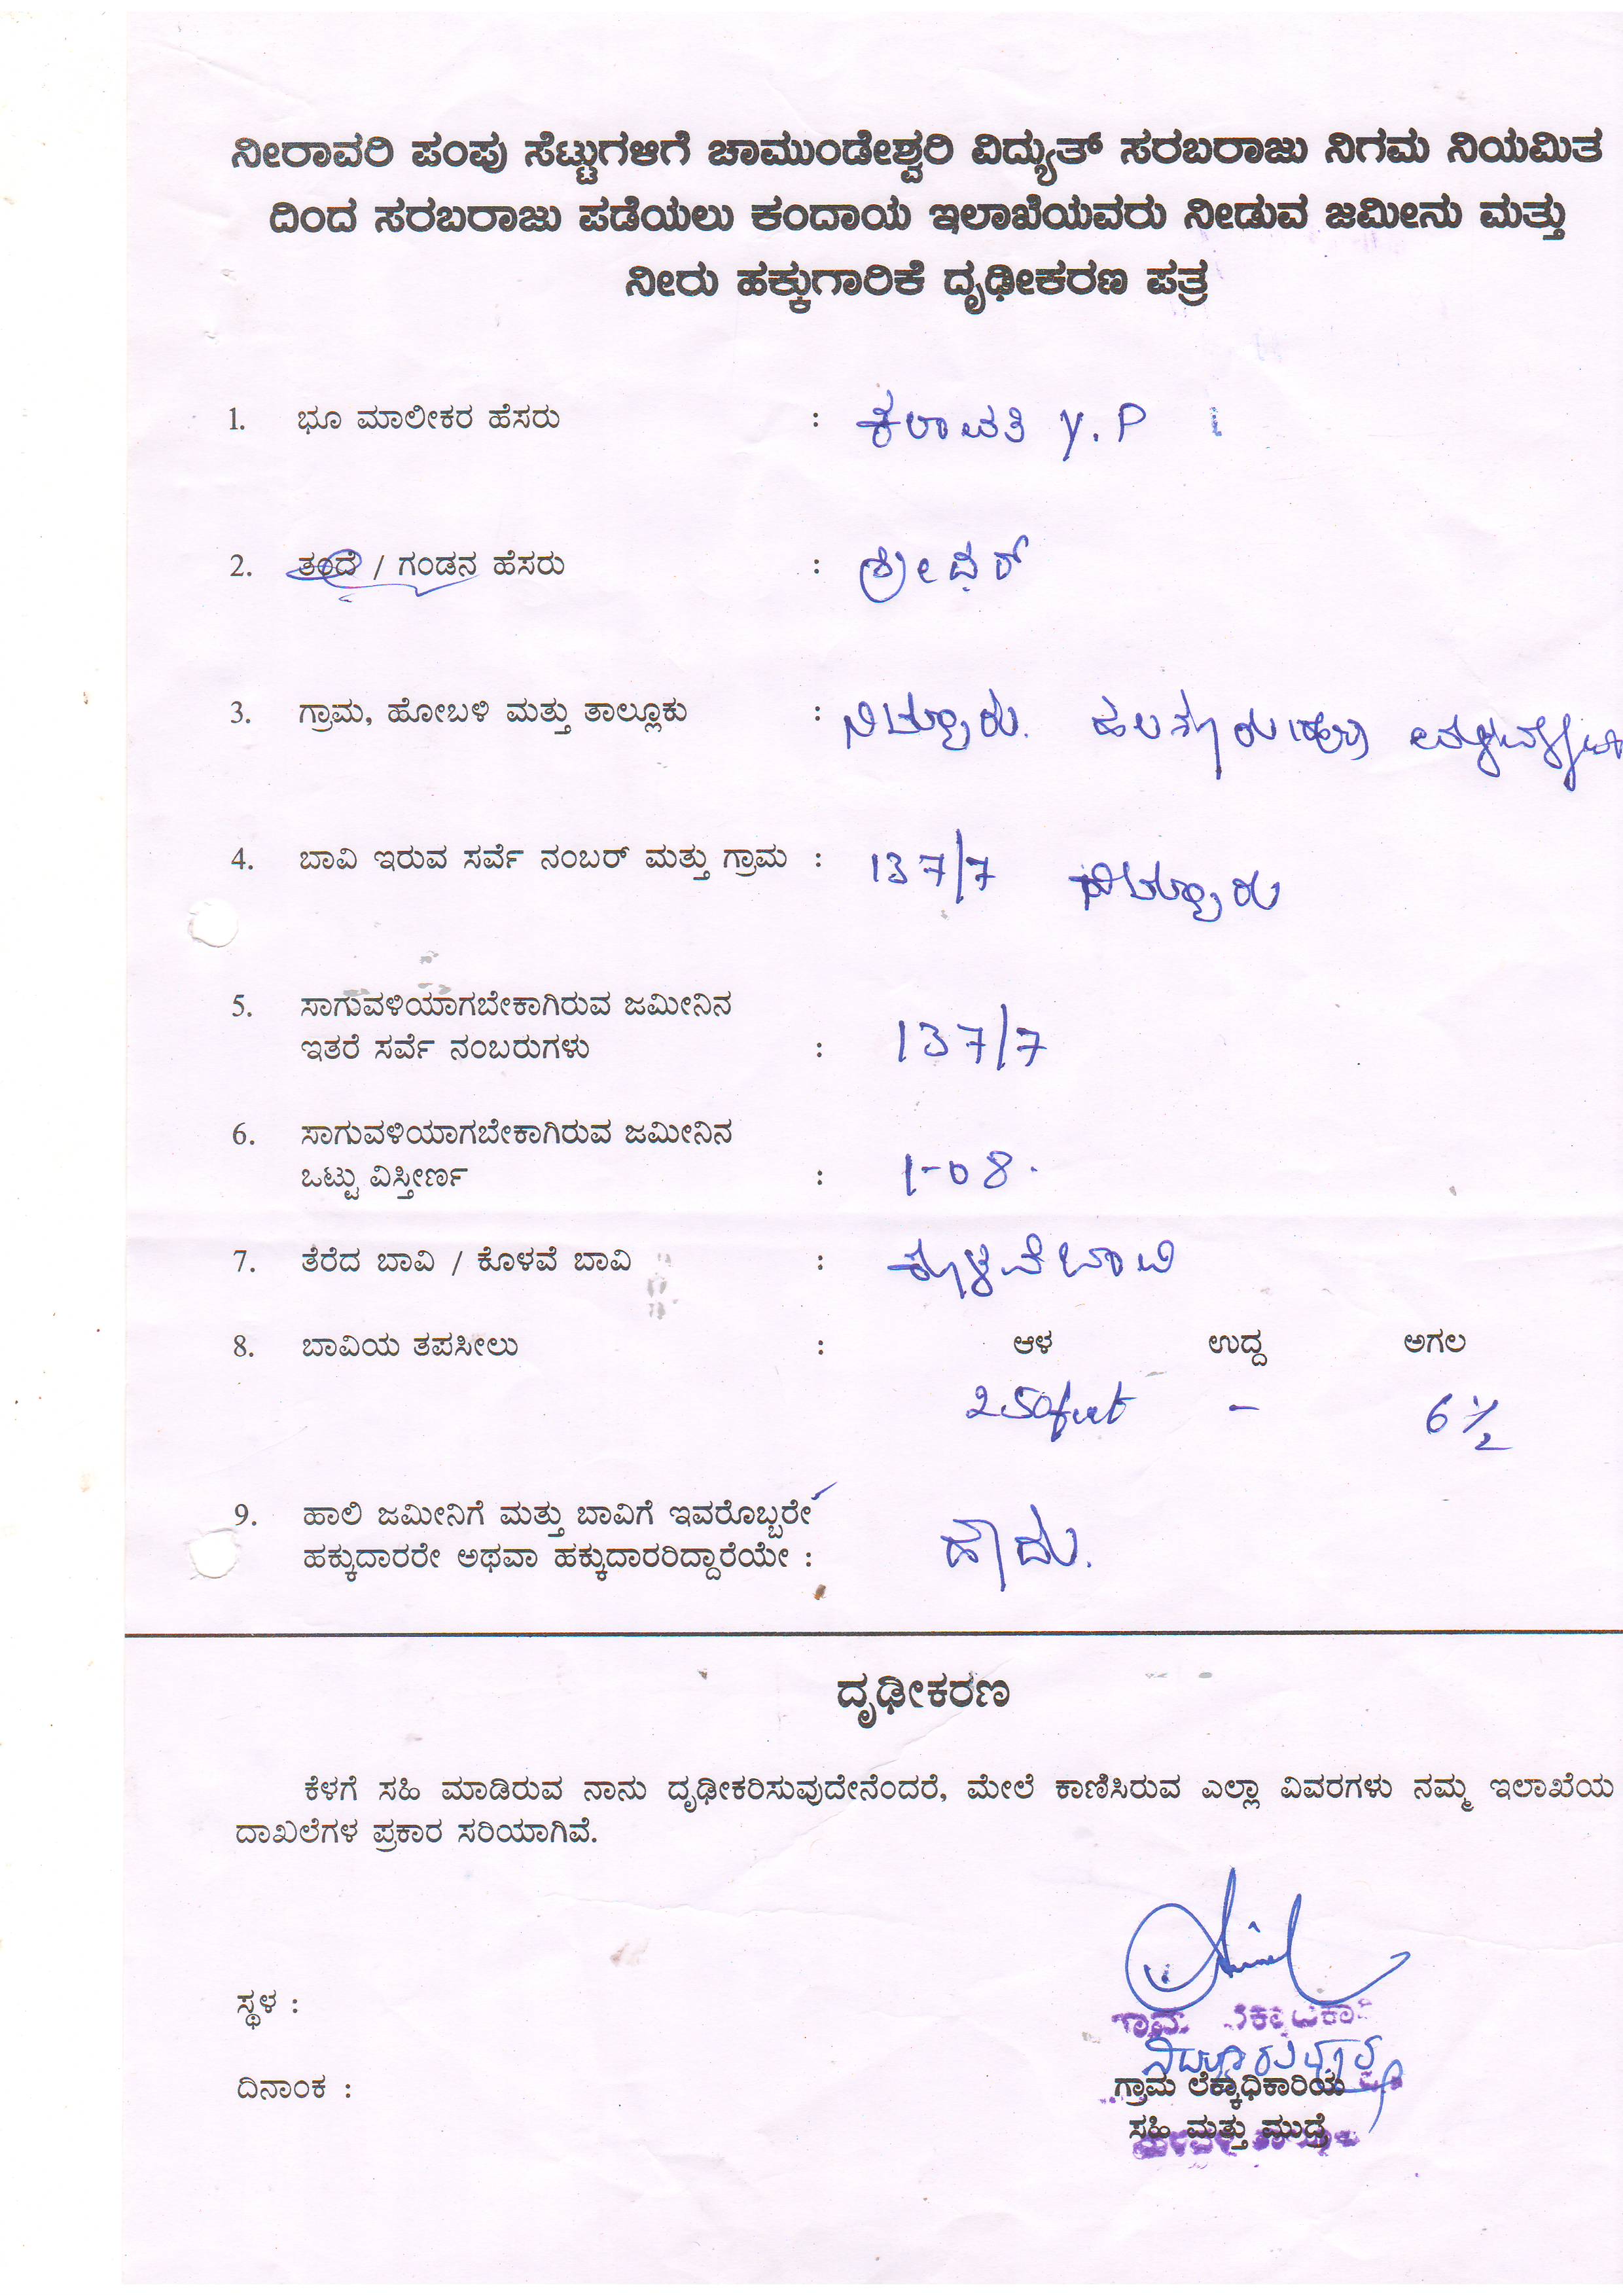 ನೀರಾವರಿ ಪಂಪು ಸೆಟ್ಟುಗಳಿಗೆ ಚಾಮುಂಡೇಶ್ವರಿ ವಿದ್ಯುತ್ ಸರಬರಾಜು ನಿಗಮ ನಿಯಮಿತ
ದಿಂದ ಸರಬರಾಜು ಪಡೆಯಲು ಕಂದಾಯ ಇಲಾಖೆಯವರು ನೀಡುವ ಜಮೀನು ಮತ್ತು
ನೀರು ಹಕ್ಕುಗಾರಿಕೆ ದೃಢೀಕರಣ ಪತ್ರ
1. ಭೂ ಮಾಲೀಕರ ಹೆಸರು : ಕಲಾವತಿ Y.P
2. ತಂದೆ / ಗಂಡನ ಹೆಸರು : ಶ್ರೀಧರ್
3. ಗ್ರಾಮ, ಹೋಬಳಿ ಮತ್ತು ತಾಲ್ಲೂಕು :
4. ಬಾವಿ ಇರುವ ಸರ್ವೆ ನಂಬರ್ ಮತ್ತು ಗ್ರಾಮ : 137/7
5. ಸಾಗುವಳಿಯಾಗಬೇಕಾಗಿರುವ ಜಮೀನಿನ
ಇತರೆ ಸರ್ವೆ ನಂಬರುಗಳು : 137/7
6. ಸಾಗುವಳಿಯಾಗಬೇಕಾಗಿರುವ ಜಮೀನಿನ
ಒಟ್ಟು ವಿಸ್ತೀರ್ಣ : 1-08.
7. ತೆರೆದ ಬಾವಿ / ಕೊಳವೆ ಬಾವಿ : ಕೊಳವೆಬಾವಿ
8. ಬಾವಿಯ ತಪಸೀಲು : ಆಳ ಉದ್ದ ಅಗಲ
250feet - 6 1/2
9. ಹಾಲಿ ಜಮೀನಿಗೆ ಮತ್ತು ಬಾವಿಗೆ ಇವರೊಬ್ಬರೇ
ಹಕ್ಕುದಾರರೇ ಅಥವಾ ಹಕ್ಕುದಾರರಿದ್ದಾರೆಯೇ : ಹೌದು.
ದೃಢೀಕರಣ
ಕೆಳಗೆ ಸಹಿ ಮಾಡಿರುವ ನಾನು ದೃಢೀಕರಿಸುವುದೇನೆಂದರೆ, ಮೇಲೆ ಕಾಣಿಸಿರುವ ಎಲ್ಲಾ ವಿವರಗಳು ನಮ್ಮ ಇಲಾಖೆಯ
ದಾಖಲೆಗಳ ಪ್ರಕಾರ ಸರಿಯಾಗಿವೆ.
ಸ್ಥಳ :
ದಿನಾಂಕ :
ಗ್ರಾಮ ಲೆಕ್ಕಾಧಿಕಾರಿಯ
ಸಹಿ ಮತ್ತು ಮುದ್ರೆ